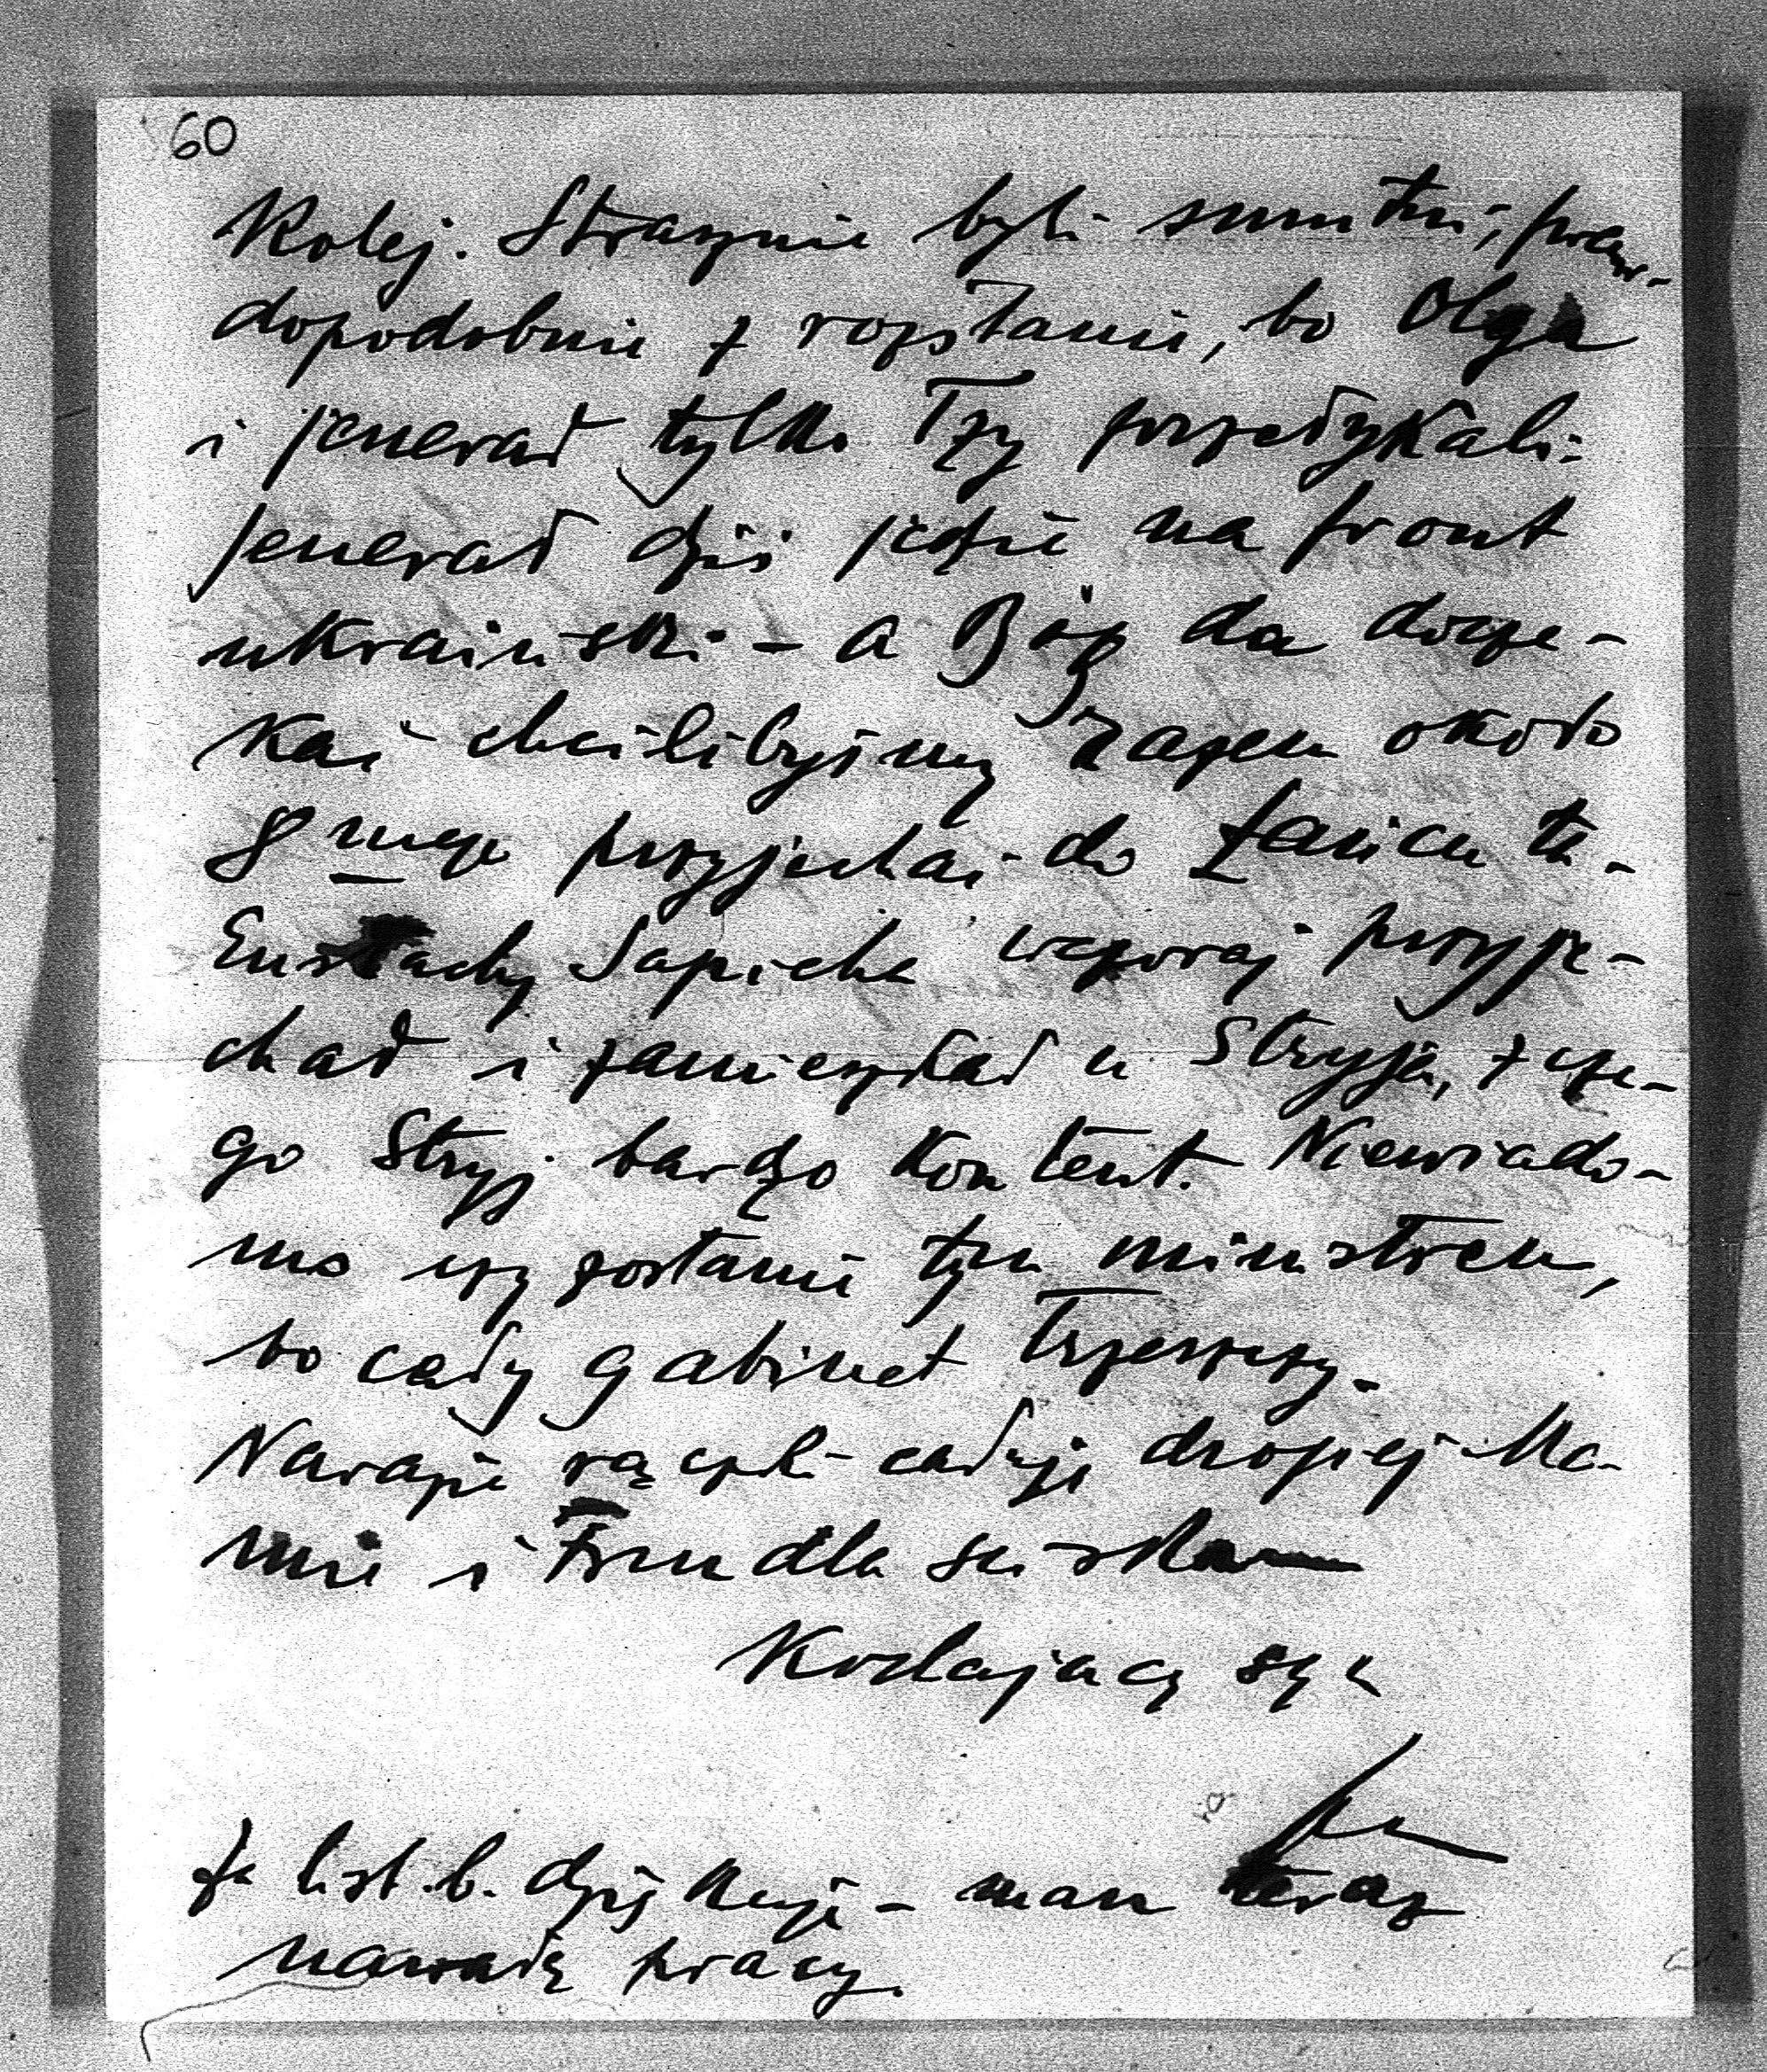 60
Kolej. Strasznie byli smutni, praw-
dopodobnie z rozstania, bo Olga
i jenerał tylko łzy połykali.
Jenerał dziś jedzie na front
ukraiński – a Bóg da docze-
kać chcielibyśmy razem około
8 mego przyjechać do Łańcuta.
Eustachy Sapieha wczoraj przyje-
chał i zamieszkał u Stryja, z cze-
go Stryj bardzo kontent. Niewiado-
mo czy zostanie tym ministrem,
bo cały gabinet trzeszczy.
Narazie rączki całuję drogiej Ma-
mie i dla ściskam
Kochający syn
Za list b. dziękuję – mam teraz
nawałę pracy.